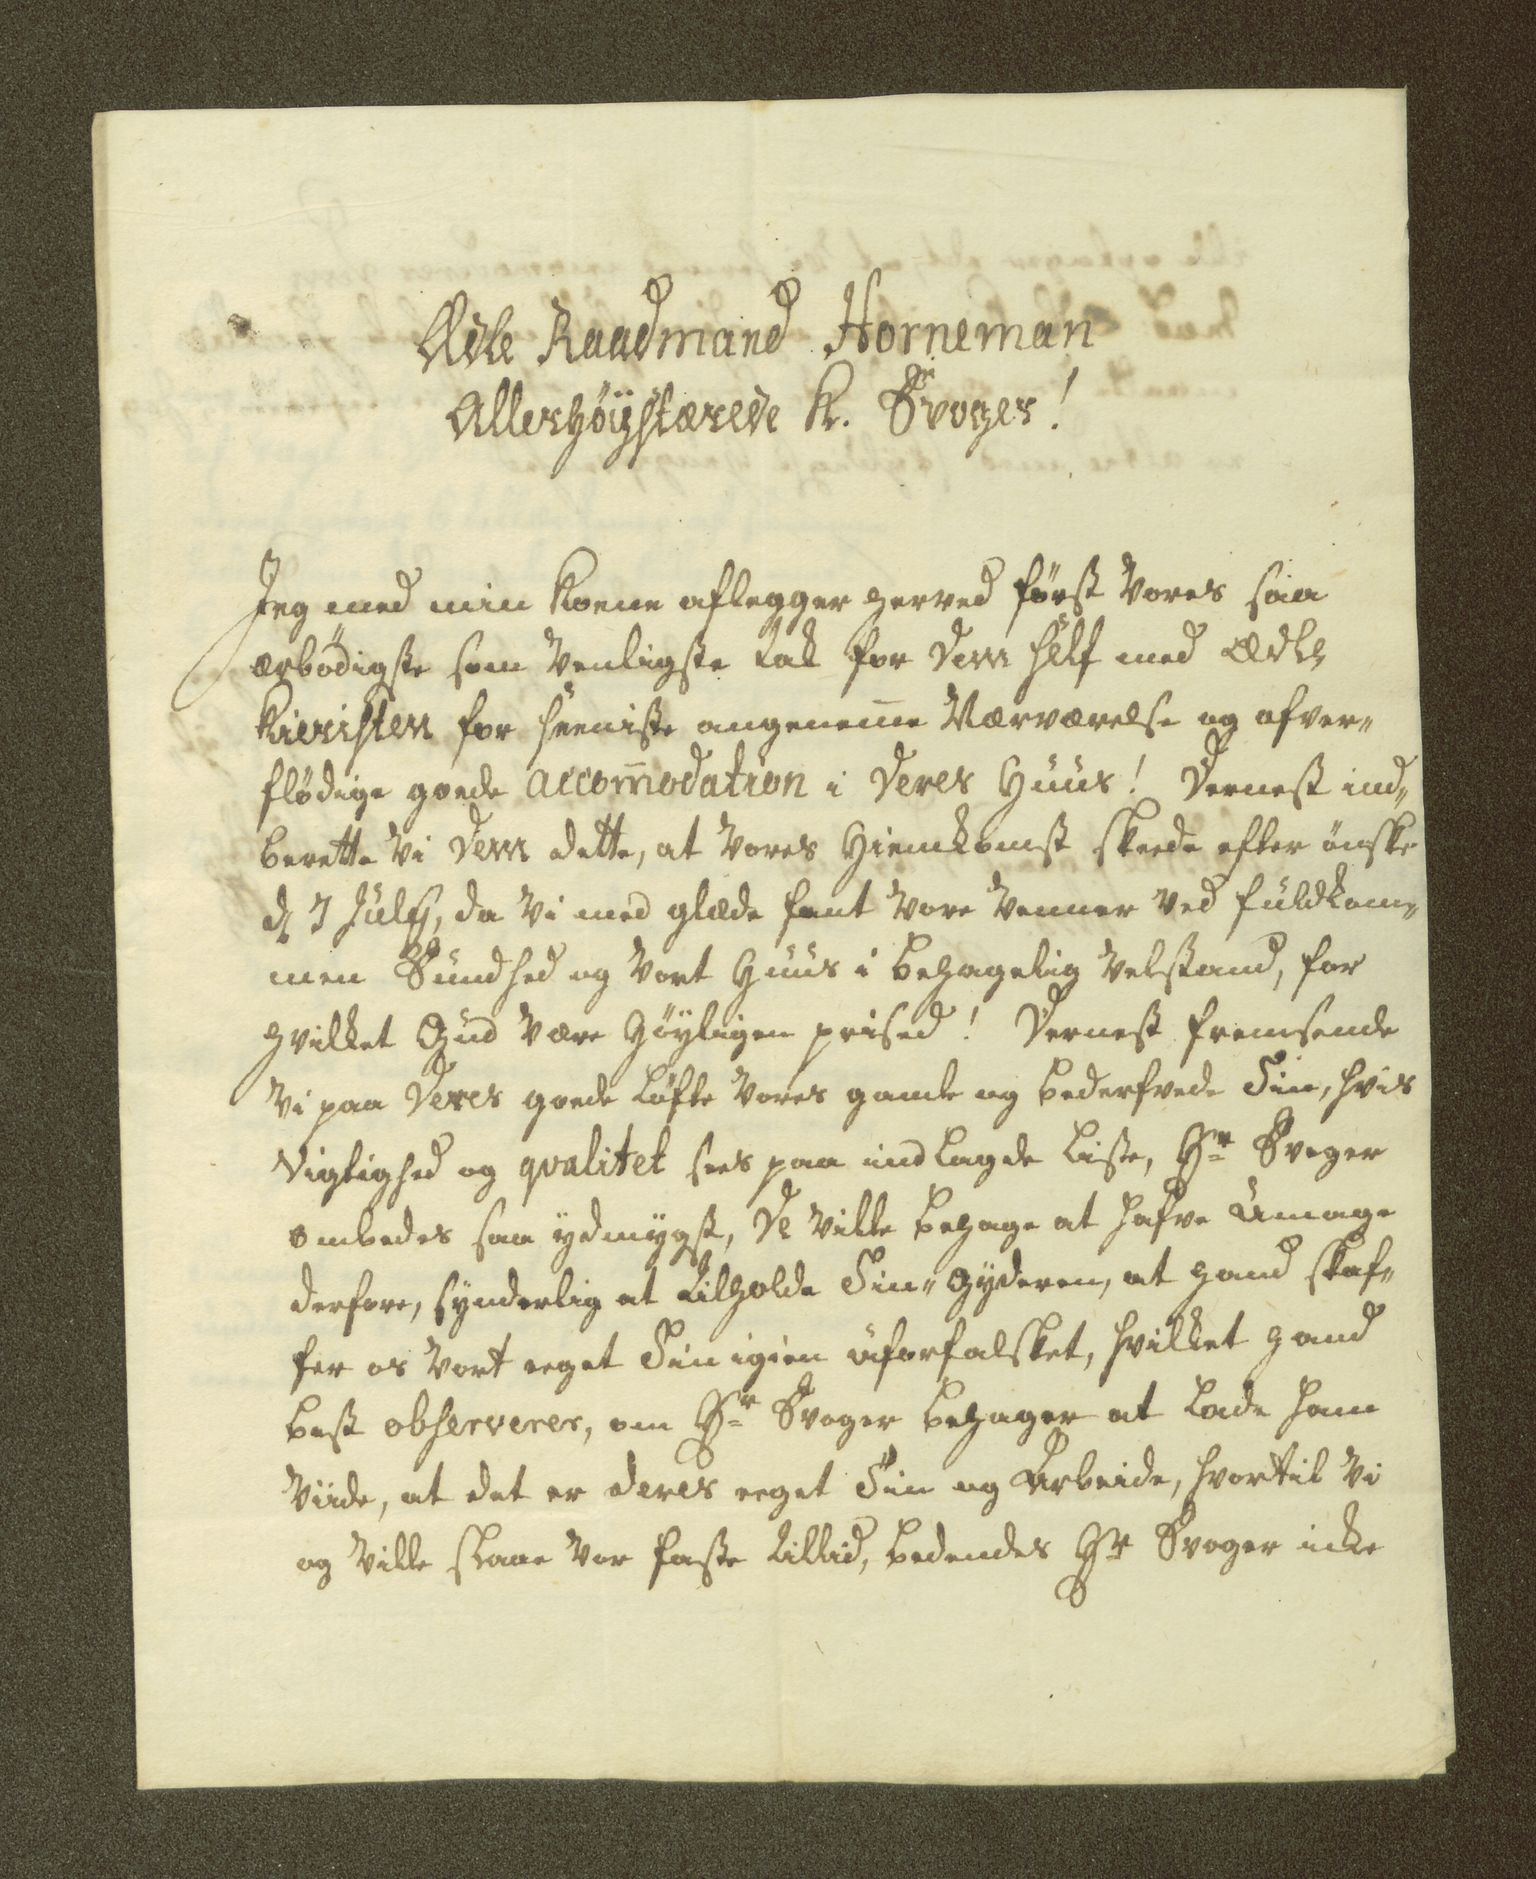 Ædle Raadmand Horneman
Allerhöÿstærede K. Svoger!
Jeg med min Kone aflegger herved först Vores saa
ærbödigste som Venligste Tak for Dem Self med Ædle
Kieristen for seeniste angeneme Nærværelse og ofver-
flödige goede accom̄odation i Deres Huus! Dernest ind-
berette Vi Dem dette, at Vores Hiemkomst skeede efter önske
d. 7 Julÿ, da Vi med glæde fant Vore Venner Ved fuldkom-
men Sundhed og Vort Huus i behagelig Velstand, for
hvilket Gud Være Höÿligen prised! Dernest fremsende
Vi paa Deres goede Löfte Vores gamle og bederfvede Tin, hvis
Vigtighed og qvalitet sees paa indlagde Liste, Hr Svoger
ombedes saa ÿdmÿgst, De Ville behage at hafve Umage
derfore, sÿnderlig at tilholde Tin-Gÿderen, at hand skaf-
fer os Vort eeget Tin igien uforfalsket, hvilket hand
best observerer, om Hr Svoger behager at lade ham
Viide, at det er deres eeget Tin og Arbeide, hvortil Vi
og Ville slaae Vor faste Tillid, bedendes Hr Svoger icke